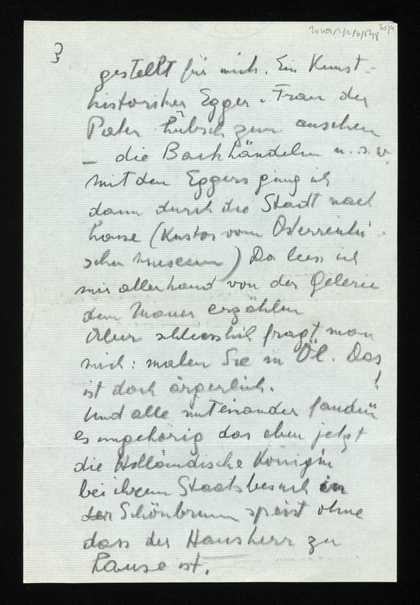 3
gestellt für mich. Ein Kunst-
historiker Egger. Frau der
Pater hübsch zum ansehen
– die Backhändeln u.s.w.
mit den Eggers ging ich
dann durch die Stadt nach
hause (Kustos vom Österreichi-
schen Museum) Da liess ich
mir allerhand von der Galerie
dem Mauer erzählen
Aber schliesslich fragt man
mich: malen Sie in Öl. Das
ist doch ärgerlich!
Und alle miteinander fanden
es ungehörig das eben jetzt
die Holländische Königin
bei ihrem Staatsbesuch in
Schönbrunn speist ohne
dass der Hausherr zu
hause ist.